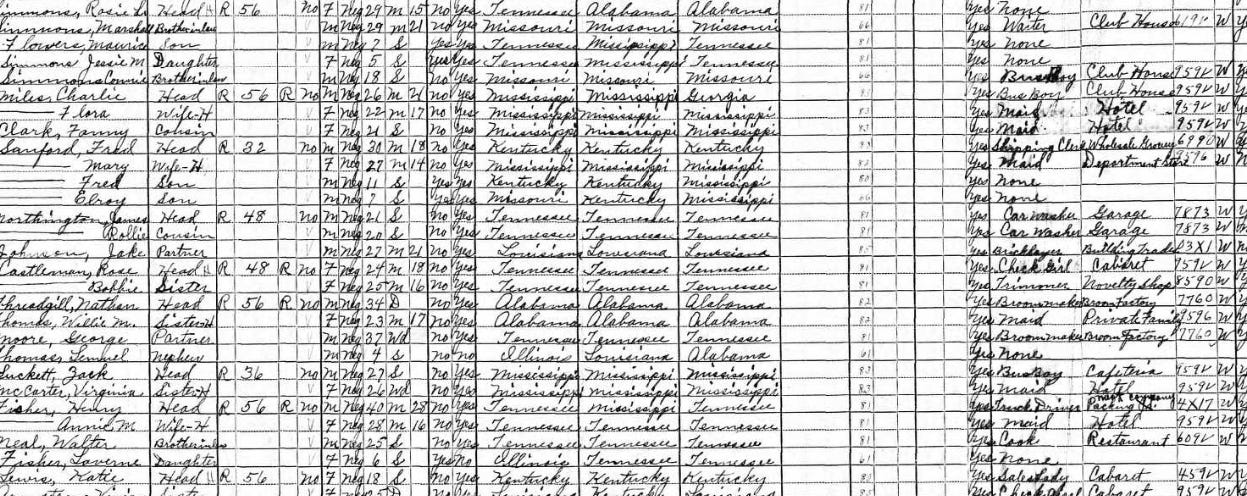 Simmons, Rosie L. Head R 56 No F Neg 29 M 15 No Yes Tennessee Alabama Alabama 81 Yes None
Simmons, Marshall Brotherinlaw M Neg 29 M 21 No Yes Missouri Missouri Missouri 66 Yes Waiter Club House W
Flowers, Maurice Son M Neg 7 S Yes Yes Tennessee Mississippi Tennessee 81 Yes None
Simmons Jessie M Daughter F Neg 5 S Yes Tennessee Mississippi Tennessee 81 Yes None
Simmons Connie Brotherinlaw M Neg 18 S No Yes Missouri Missouri Missouri 66 Yes Bus Boy Club House 9592 W
Miles, Charlie Head R 56 R No M Neg 26 M 21 No Yes Mississippi Mississippi Georgia 83 Yes Bus Boy Club House 9592 W
Flora Wife-H F Neg 22 M 17 No Yes Mississippi Mississippi Mississippi 83 Yes Maid Hotel 9592 W
Clark, Fanny Cousin F Neg 21 S No Yes Mississippi Mississippi Mississippi 83 Yes Maid Hotel 9592 W
Sanford, Fred Head R 32 No M Neg 30 M 18 No Yes Kentucky Kentucky Kentucky Yes Shipping Clerk Wholesale Grocery 6990 W
Mary Wife-H F Neg 27 M 14 No Yes Mississippi Mississippi Mississippi 83 Yes Maid Department Store W
Fred Son M Neg 11 S Yes Yes Kentucky Kentucky Mississippi 80 Yes None
Elroy Son M Neg 7 S Yes Yes Missouri Kentucky Mississippi 66 Yes None
Northington, James Head R 48 No M Neg 21 S No Yes Tennessee Tennessee Tennessee 81 Yes Car washer Garage 7873 W
Rollie Cousin M Neg 20 S No Yes Tennessee Tennessee Tennessee 81 Yes Car Washer Garage 7873 W
Johnson, Jake Partner M Neg 27 M 21 No Yes Louisiana Louisiana Louisiana 85 Yes Bricklayer Building Trades 23X1 W
Castleman, Rose Head H R 48 R No F Neg 24 M 18 No Yes Tennessee Tennessee Tennessee 81 Yes Check Girl Cabaret 9592 W
Bobbie Sister F Neg 25 M 16 No Yes Tennessee Tennessee Tennessee 81 Yes Trimmer Novelty Shop 8590 W
Threadgill, Nathan Head R 56 R No M Neg 34 D No Yes Alabama Alabama Alabama 82 Yes Broommaker Broom Factory 7760 W
Thomas, Willie M. Sister-H F Neg 23 M 17 No Yes Alabama Alabama Alabama 82 Yes Maid Private Family 9596 W
Moore, George Partner M Neg 37 Wd No Yes Tennessee Tennessee Tennessee 81 Yes Broommaker Broom Factory 7760 W
Thomas, Lemuel Nephew M Neg 4 S No No Illinois Louisiana Alabama 61 Yes None
Luckett, Zack Head R 36 No M Neg 27 S No Yes Mississippi Mississippi Mississippi 83 Yes Bus Boy Cafeteria 9592 W
McCarter, Virginia Sister-H F Neg 26 Wd No Yes Mississippi Mississippi Mississippi 83 Yes Maid Hotel 9592 W
Fisher, Henry Head R 56 R No M Neg 40 M 28 No Yes Tennessee Mississippi Tennessee 81 Yes Truck Driver Packing 4X17 W
Annie M Wife-H F Neg 28 M 16 No Yes Tennessee Tennessee Tennessee 81 Yes Maid Hotel 9592 W
Neal, Walter Brotherinlaw M Neg 25 S No Yes Tennessee Tennessee Tennessee 81 Yes Cook Restaurant 6092 W
Fisher, Laverne Daughter F Neg 6 S Yes No Illinois Tennessee Tennessee 61 Yes None
Lewis, Katie Head H R 56 No F Neg 18 S No Yes Kentucky Kentucky Kentucky Yes Saleslady Cabaret 4592 W